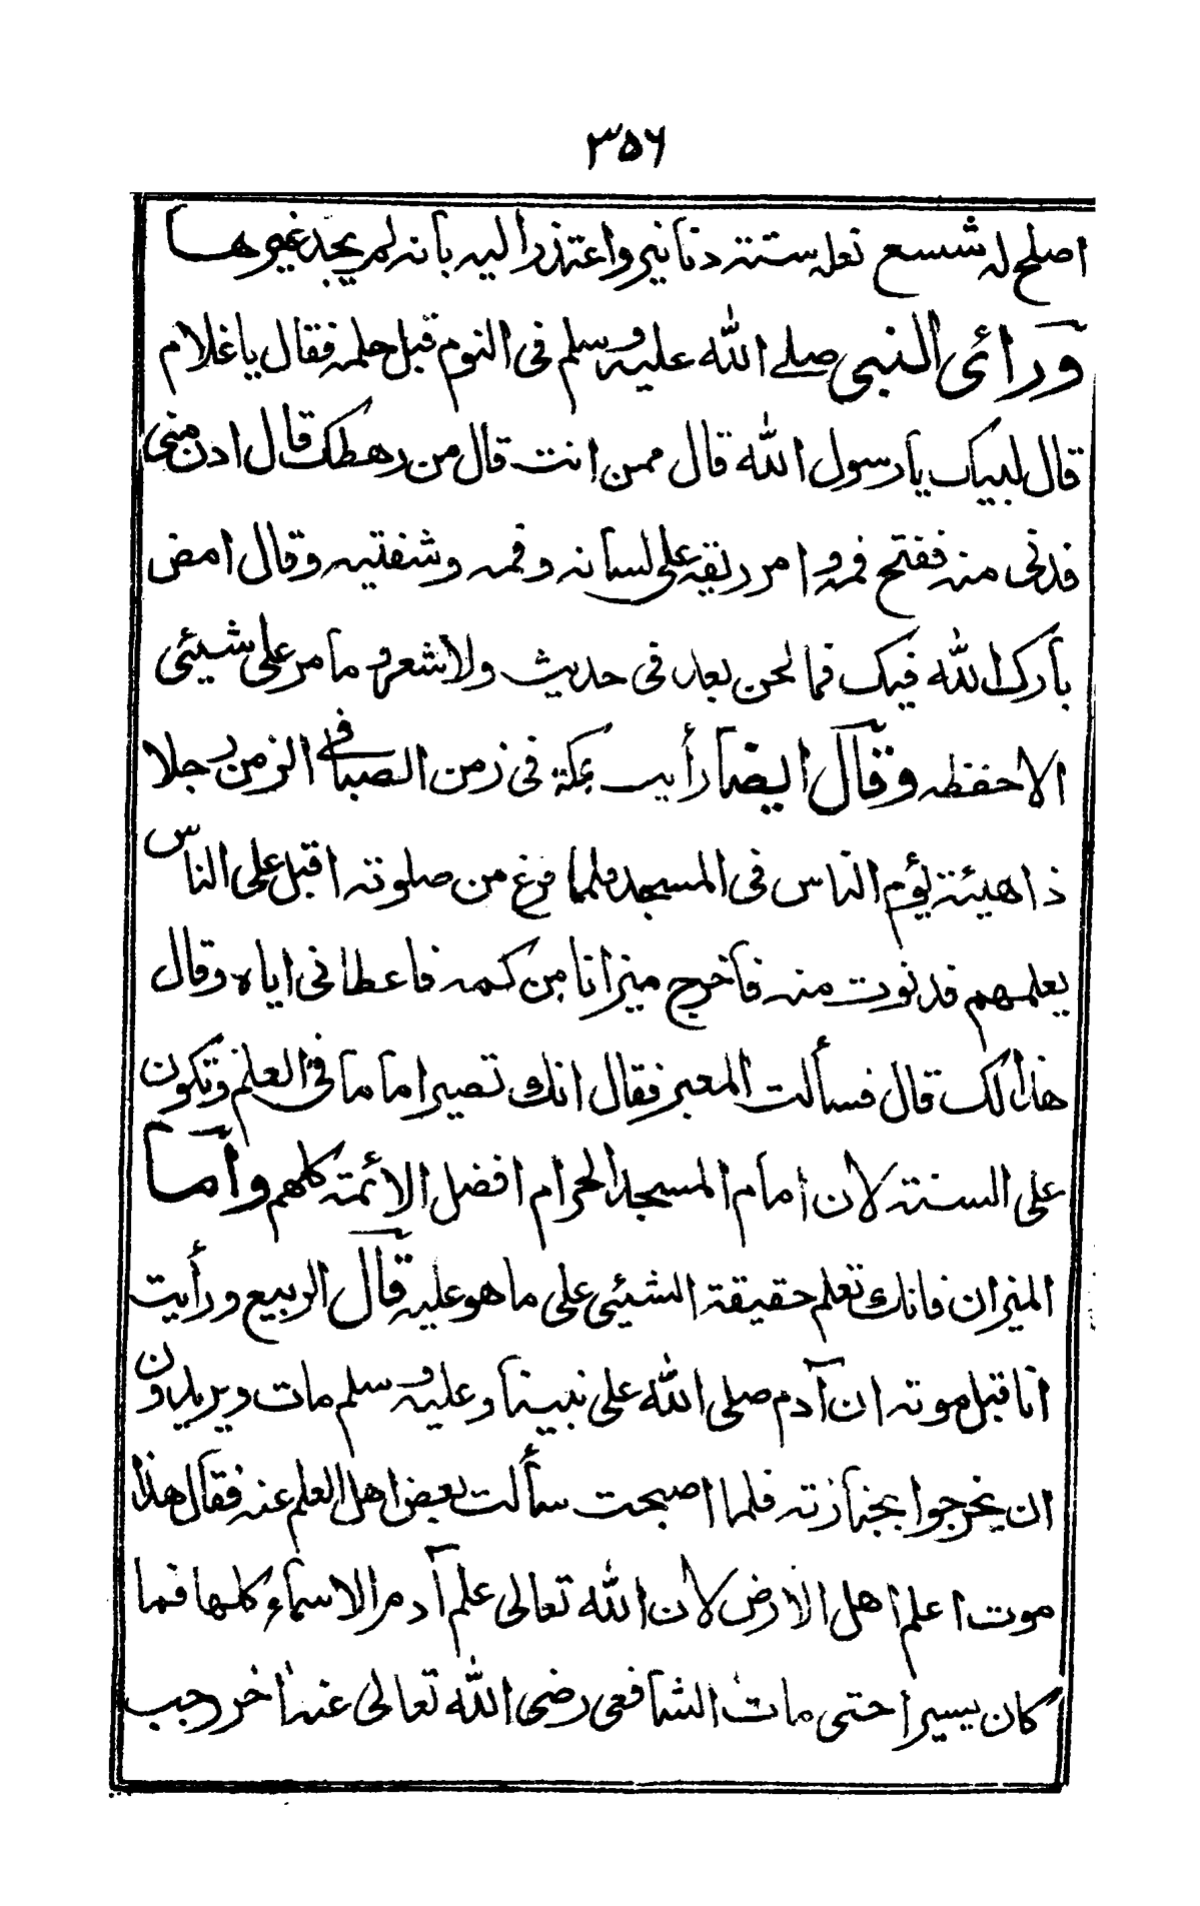 ٣٥٦
اصلح له شسع نعله ستة دنانير واعتذر اليه بانه لم يجد غيرها
ورائ النبي صلى الله عليه وسلم فى النوم قبل حلمه فقال ياغلام
قال لبيك يارسول الله قال ممن انت قال من رهطك قال ادن منى
فدنى منه ففتح فمه وامر ريقه على لسانه وفمه وشفتيه وقال امض
بارك الله فيك فما لحن بعد فى حديث ولاشعر وما مر على شيئى
الاحفظه وقال ايضا رأيت بمكة فى زمن الصبا فى الزمن رجلا
ذاهيئة يؤم الناس فى المسجد فلما فرغ من صلوته اقبل على الناس
يعلمهم فدنوت منه فاخرج ميزانا من كمه فاعطانى اياه وقال
هذالك قال فسألت المعبر فقال انك تصير اماما فى العلم وتكون
على السنة لان امام المسجد الحرام افضل الائمة كلهم واما
الميزان فانك تعلم حقيقة الشيئى على ماهو عليه قال الربيع ورأيت
انا قبل موته ان آدم صلى الله على نبينا وعليه وسلم مات ويريدون
ان يخرجوا بجنازته فلما اصبحت سألت بعض اهل العلم عنه فقال هذا
موت اعلم اهل الارض لان الله تعالى علم آدم الاسماء كلها فما
كان يسيرا حتى مات الشافعى رضى الله تعالى عنه أخر رجب